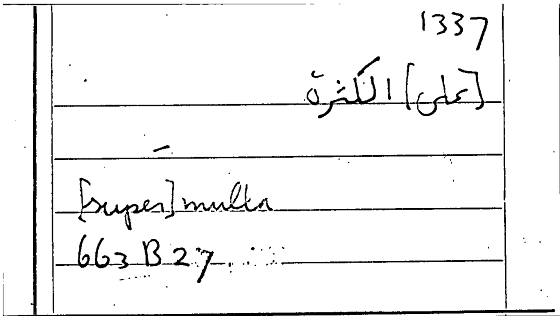 1337
[على] الكثرة
[super] multa
663 B 27